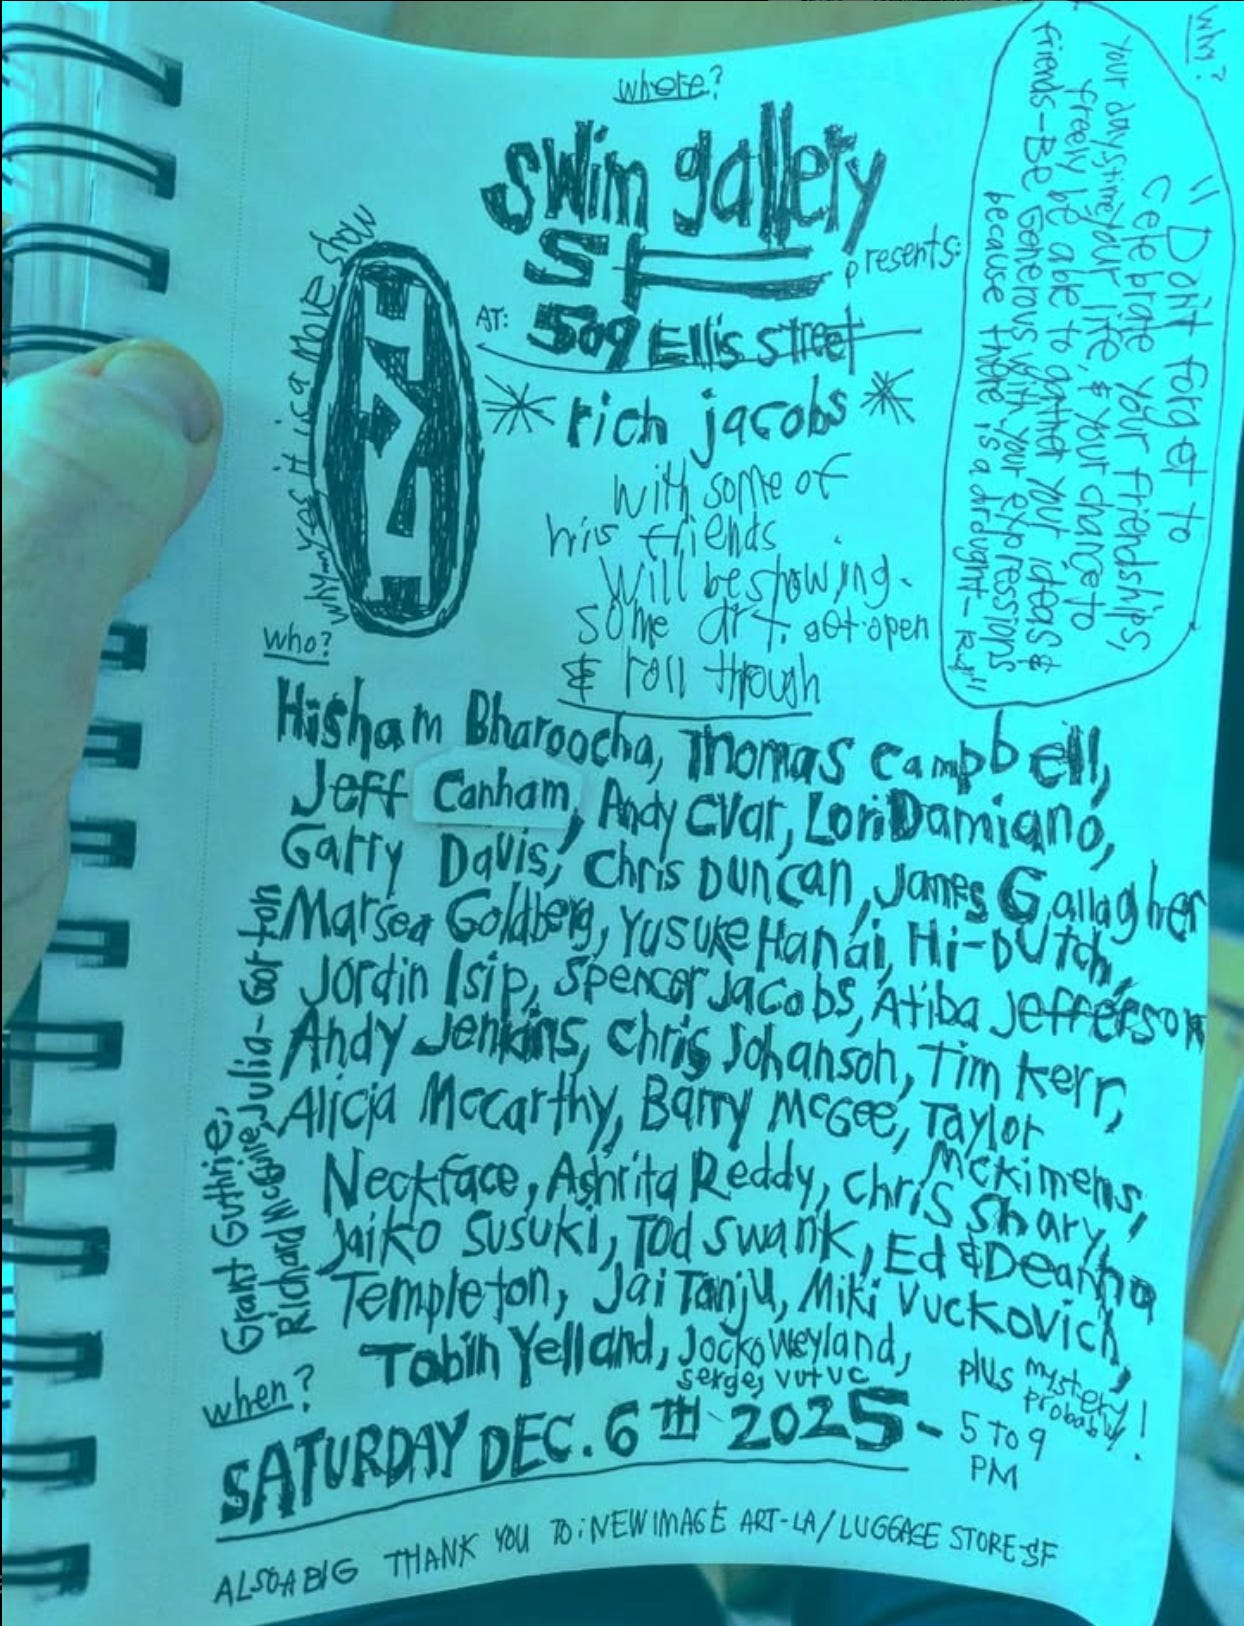 where?
swim gallery
SF presents:
AT: 509 Ellis street
rich jacobs
with some of
his friends
will be showing.
some art. get open
& roll through
why? yes it is a move show
why?
"Don't forget to
celebrate your friendships,
your days/time, your life, & your chance to
freely be able to gather your ideas &
friends-Be Generous with your expressions
because there is a drought-
who?
Hisham Bharoocha, Thomas Campbell,
Jeff Canham, Andy CVar, Lori Damiano,
Garry Davis, Chris Duncan, James Gallagher
Marsea Goldberg, Yusuke Hanai, Hi-Dutch,
Jordin Isip, Spencer Jacobs, Atiba Jefferson
Andy Jenkins, Chris Johanson, Tim Kerr,
Alicia Mccarthy, Barry McGee, Taylor
Mckimens,
Neckface, Ashrita Reddy, Chris Shary,
Jaiko Susuki, Tod Swank, Ed & Deanna
Templeton, Jai Tanju, Miki Vuckovich,
Tobin Yelland, Jocko Weyland,
serge, vutvc
plus mystery
probably!
Grant Guthrie,
Richard McGuire, Julia-Gorton
when?
SATURDAY DEC. 6TH 2025 - 5 TO 9
PM
ALSO A BIG THANK YOU TO: NEW IMAGE ART-LA/LUGGAGE STORE-SF